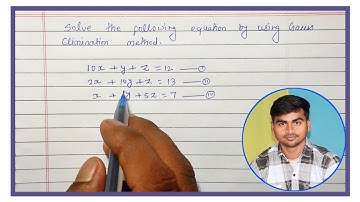 Solve the following equation by using Gauss
Elimination method.
10x + y + z = 12 —— (i)
2x + 10y + z = 13 —— (ii)
x + y + 5z = 7 —— (iii)